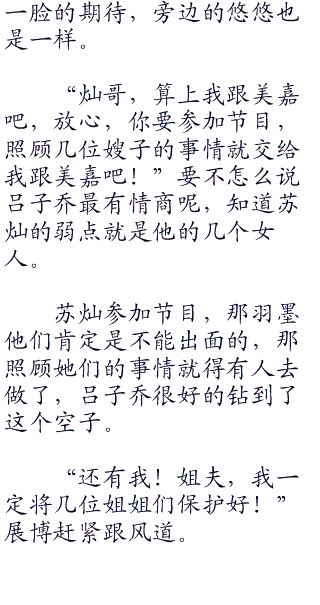 一脸的期待，旁边的悠悠也
是一样。
“灿哥，算上我跟美嘉
吧，放心，你要参加节目，
照顾几位嫂子的事情就交给
我跟美嘉吧！”要不怎么说
吕子乔最有情商呢，知道苏
灿的弱点就是他的几个女
人。
苏灿参加节目，那羽墨
他们肯定是不能出面的，那
照顾她们的事情就得有人去
做了，吕子乔很好的钻到了
这个空子。
“还有我！姐夫，我一
定将几位姐姐们保护好！”
展博赶紧跟风道。